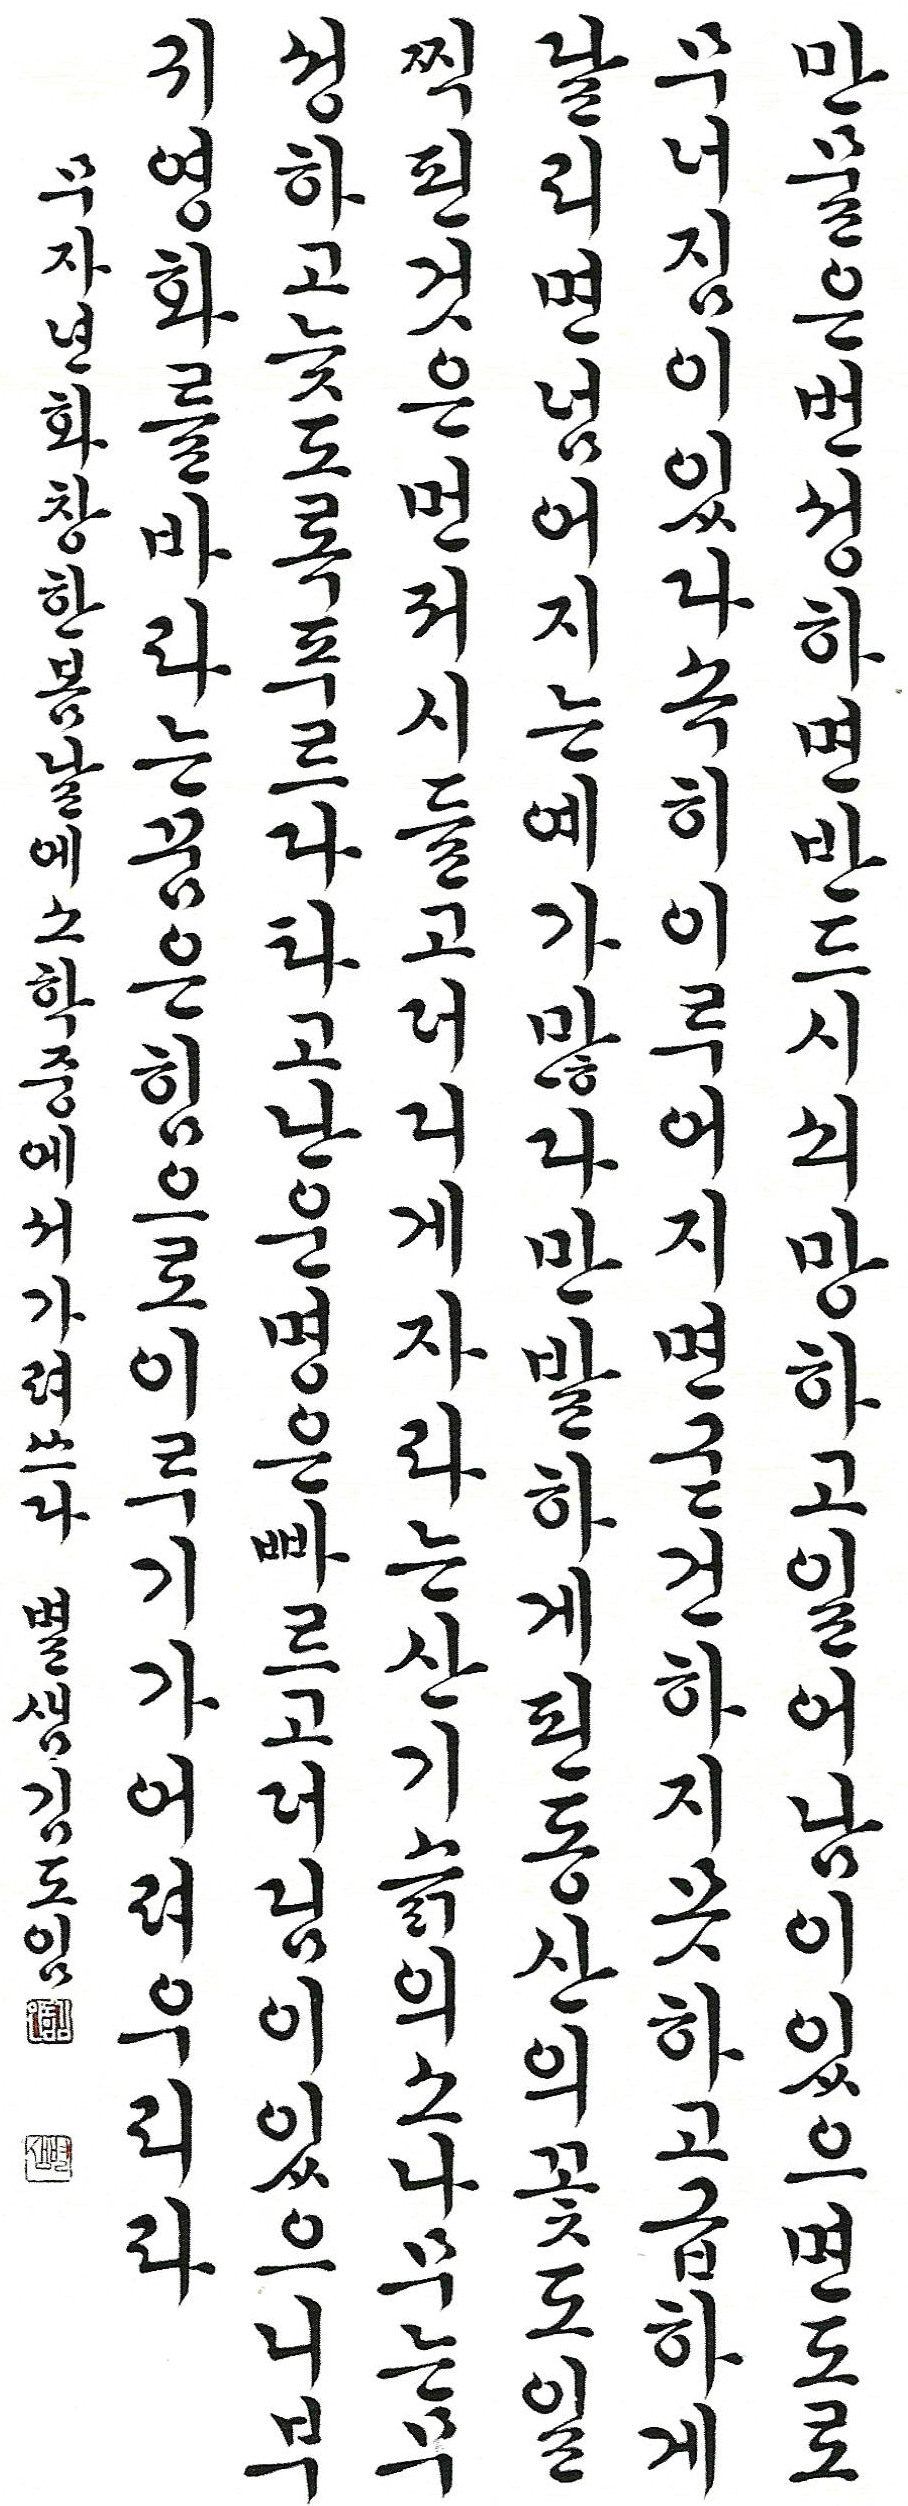 만물은번성하면반드시쇠망하고일어남이있으면도로
무너짐이있다속히이루어지면굳건하지못하고급하게
달리면넘어지는예가많다만발하게핀동산의꽃도일
찍핀것은먼저시들고더디게자라는산기슭의소나무는무
성하고늦도록푸르다타고난운명은빠르고더딤이있으니부
귀영화를바라는꿈은힘으로이루기가어려우리라
무자년화창한봄날에소학중에서가려쓰다 별샘김도임